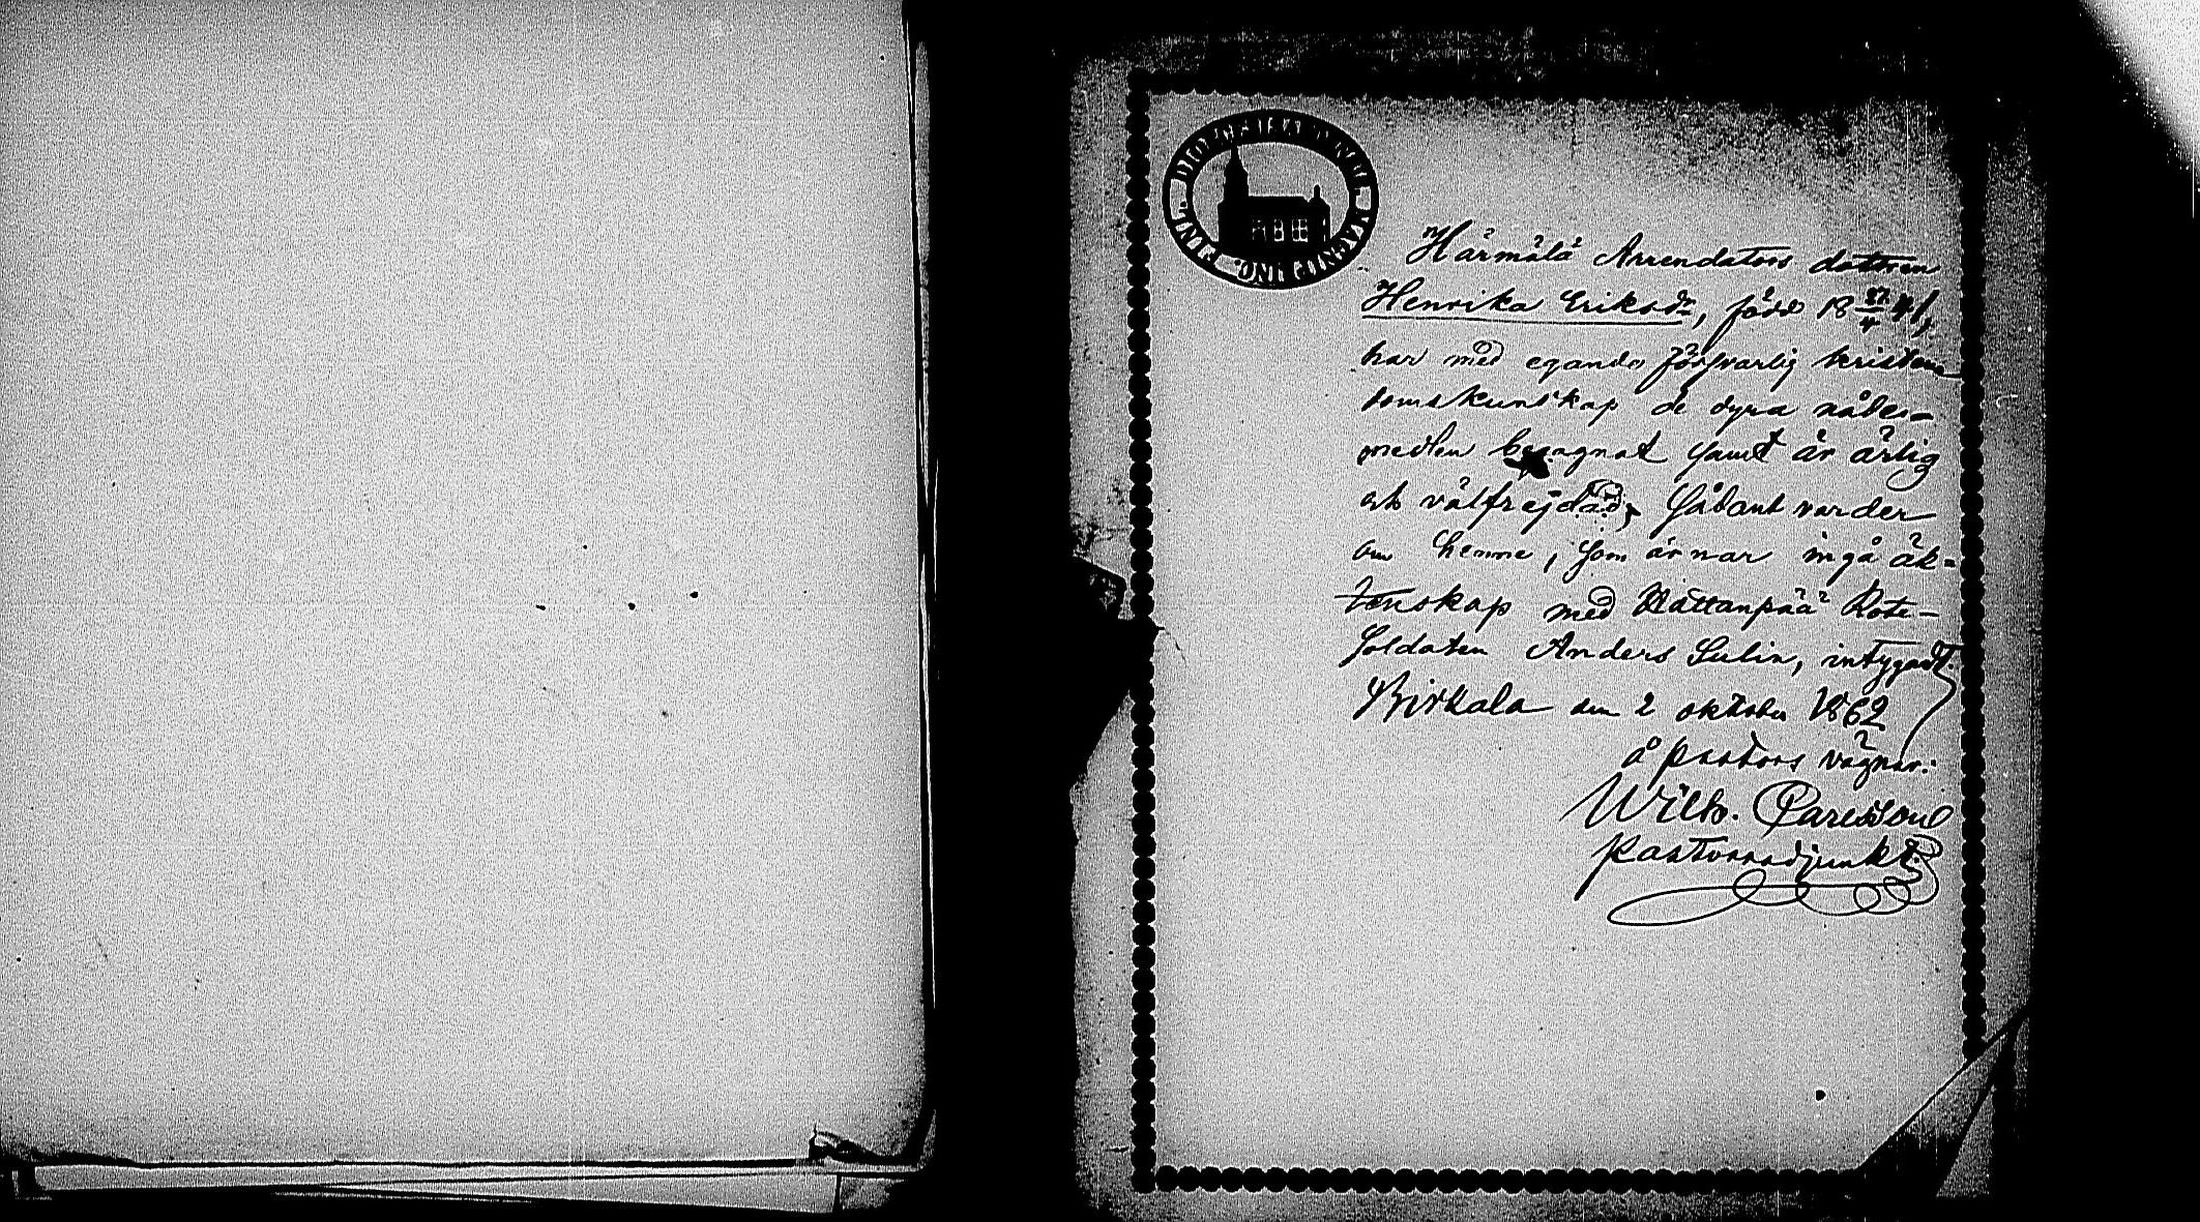 FINL. DIOCES MAGNIP. INO.
Härmälä Arrendators dottren
Henrika Eriksdr, född 18 27/4 41,
har med egande försvarlig kristen
domskunskap de dyra nådes-
medlen begagnat samt är ärlig
och välfrejdad; Sådant varder
om henne, som ärnar ingå äk-
tenskap med Hattanpää Rote-
Soldaten Anders Sulin, intygadt.
Birkala den 2 oktober 1862
å pastors vägnar:
Wilh. Carlsson
Pastorsadjunkt.